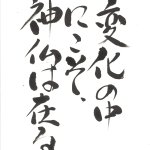 変化の中
にこそ、
神仏は在る